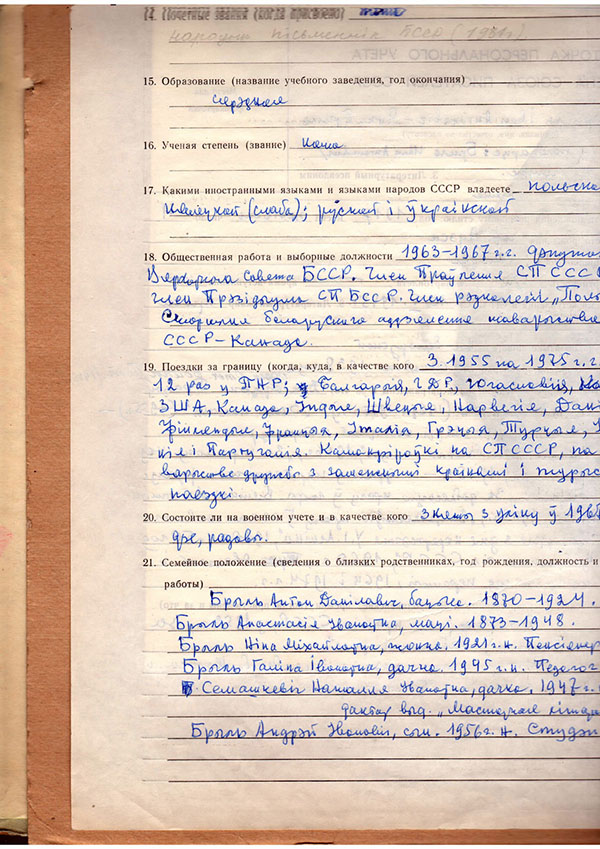 14. Почетные звания (когда присвоено)
народны пісьменнік БССР (1981г.)
15. Образование (название учебного заведения, год окончания)
сярэдняя
16. Ученая степень (звание) няма
17. Какими иностранными языками и языками народов СССР владеете польска
нямецкай (слаба); рускай і ўкраінскай
18. Общественная работа и выборные должности 1963–1967 г.г. дэпутат
Вярхоўнага Совета БССР. Член Праўлення СП СССР
член Прэзідыума СП БССР. Член рэдкалегіі „Полы
беларускага аддзялення таварыства
СССР–Канада.
19. Поездки за границу (когда, куда, в качестве кого З 1955 па 1975 г.г.
12 раз у ПНР; Балгарыя, ГДР, Югаславія,
ЗША, Канада, Індыя, Швецыя, Нарвегія, Дані
Фінляндыя, Францыя, Італія, Грэцыя, Турцыя,
нія і Партугалія. Камандзіроўкі па СП СССР, па
варыства дружбы з замежнымі краінамі і турыс
паездкі.
20. Состоите ли на военном учете и в качестве кого Зняты з уліку ў 196
дзе, радавы.
21. Семейное положение (сведения о близких родственниках, год рождения, должность и
работы)
Брыль Антон Данілавіч, бацька. 1870–1924.
Брыль Анастасія Іванаўна, маці. 1873–1948.
Брыль Ніна Міхайлаўна, жонка. 1921 г.н. Пенсіянер
Брыль Галіна Іванаўна, дачка. 1945 г.н. Педагог
Семашкевіч Наталля Іванаўна, дачка. 1947 г.
дактар выд. „Мастацкая літара
Брыль Андрэй Іванавіч, сын. 1956 г.н. Студэн